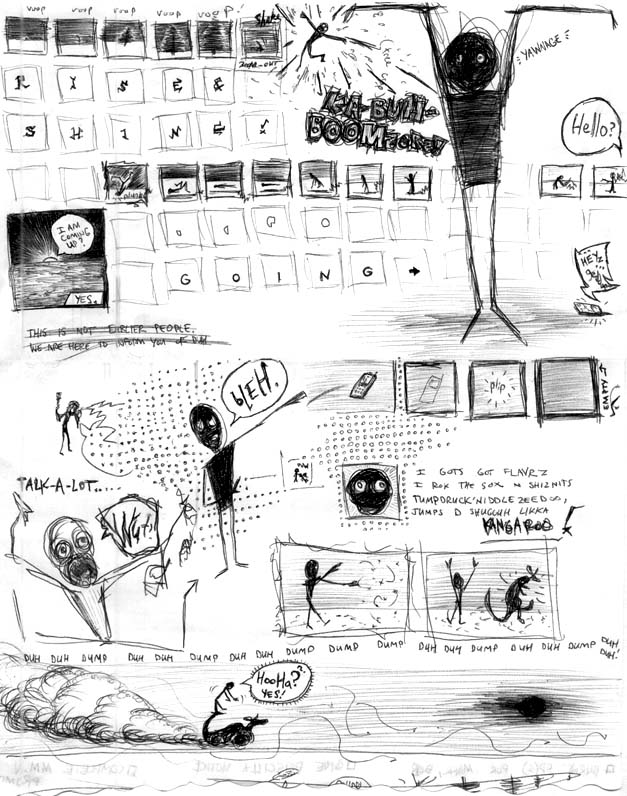 VOOP VOOP VOOP VOOP VOOP
Shake
ZOOM-OUT
R I S E &
S H I N E
KA-BUH-
BOOM
YAWNAGE
Hello?
I AM
COMING
UP?
YES.
G O
G O I N G
THIS IS NOT EARLIER PEOPLE.
WE ARE HERE TO INFORM YOU OF DUH
HEYZ
bLEH.
plip
AWAY
TALK-A-LOT.....
I GOTS GOT FLAVRZ
I ROX THE SOX N SHIZNITS
JUMPS D SHUGGUH LIKKA
KANGAROO!
DUH DUH DUMP DUH DUH DUMP DUH DUH DUMP DUMP DUMP DUH DUH DUMP DUH DUH DUMP DUH DUH!
HooHa??
YES!